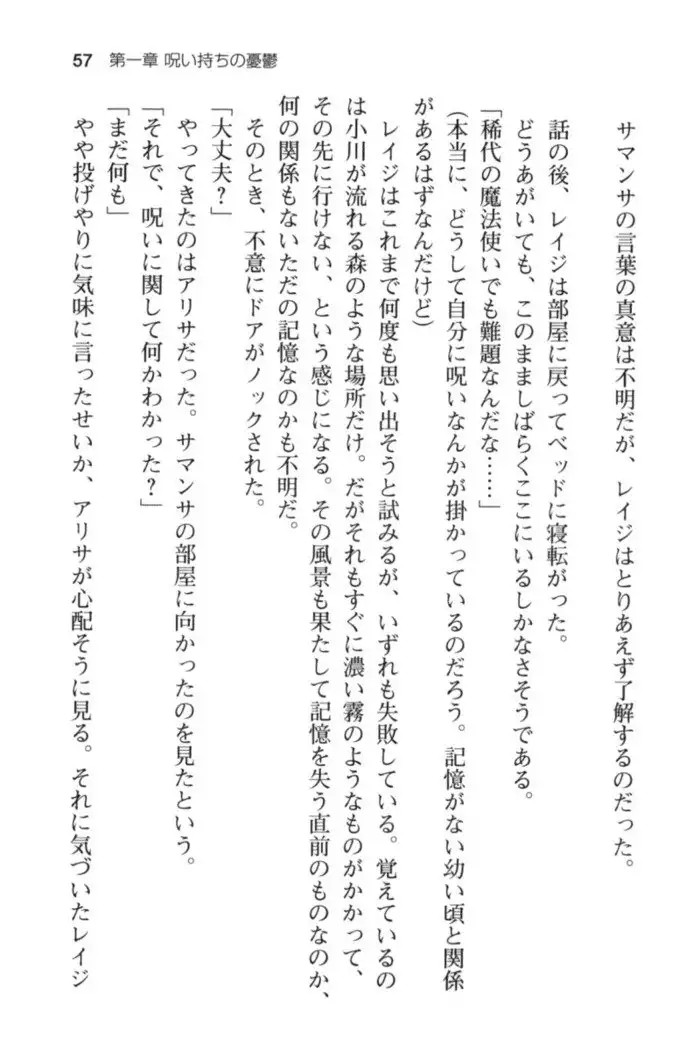 57 第一章 呪い持ちの憂鬱
サマンサの言葉の真意は不明だが、レイジはとりあえず了解するのだった。
話の後、レイジは部屋に戻ってベッドに寝転がった。
どうあがいても、このまましばらくここにいるしかなさそうである。
「稀代の魔法使いでも難題なんだな……」
(本当に、どうして自分に呪いなんかが掛かっているのだろう。記憶がない幼い頃と関係
があるはずなんだけど)
レイジはこれまで何度も思い出そうと試みるが、いずれも失敗している。覚えているの
は小川が流れる森のような場所だけ。だがそれもすぐに濃い霧のようなものがかかって、
その先に行けない、という感じになる。その風景も果たして記憶を失う直前のものなのか、
何の関係もないただの記憶なのかも不明だ。
そのとき、不意にドアがノックされた。
「大丈夫?」
やってきたのはアリサだった。サマンサの部屋に向かったのを見たという。
「それで、呪いに関して何かわかった?」
「まだ何も」
やや投げやりに気味に言ったせいか、アリサが心配そうに見る。それに気づいたレイジ